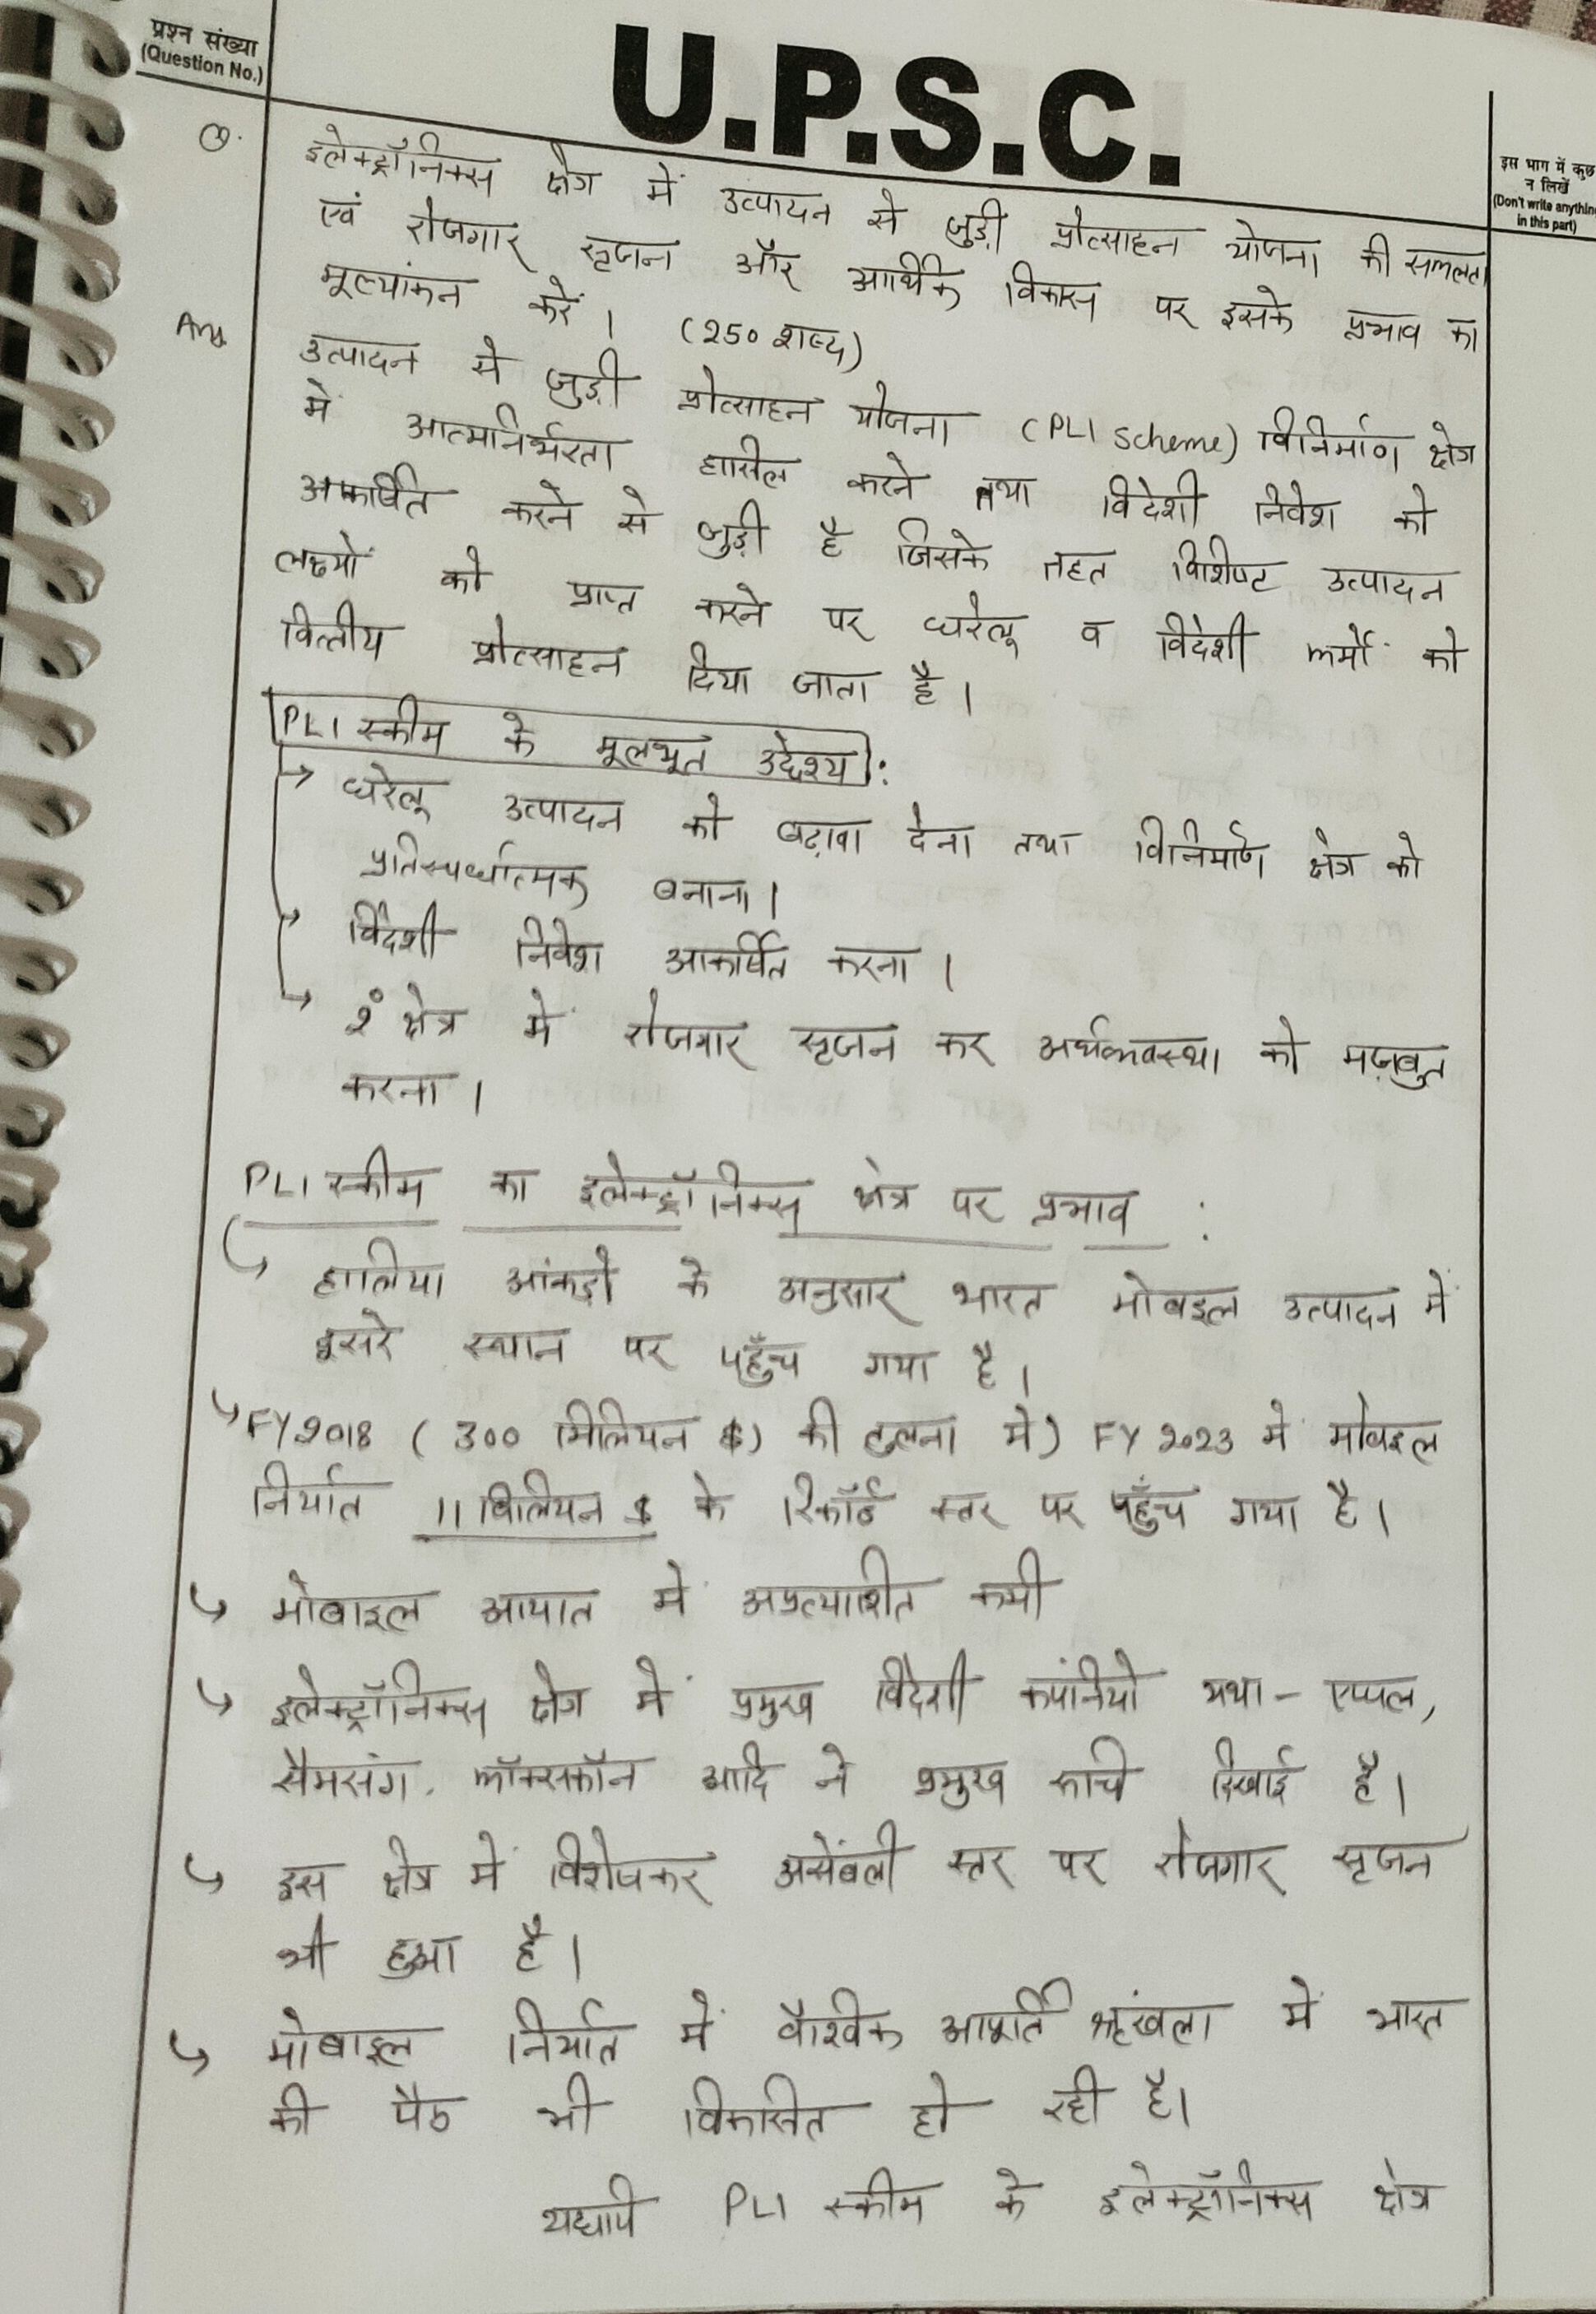 प्रश्न संख्या
(Question No.)
U.P.S.C.
इस भाग में कुछ
न लिखें
(Don't write anything
in this part)
Q.
इलेक्ट्रॉनिक्स क्षेत्र में उत्पादन से जुड़ी प्रोत्साहन योजना की सफलता
एवं रोजगार सृजन और आर्थिक विकास पर इसके प्रभाव का
मूल्यांकन करें। (250 शब्द)
Ans
उत्पादन से जुड़ी प्रोत्साहन योजना (PLI scheme) विनिर्माण क्षेत्र
में आत्मनिर्भरता हासिल करने तथा विदेशी निवेश को
आकर्षित करने से जुड़ी है जिसके तहत विशिष्ट उत्पादन
लक्ष्यों को प्राप्त करने पर घरेलू व विदेशी फर्मों को
वित्तीय प्रोत्साहन दिया जाता है।
PLI स्कीम के मूलभूत उद्देश्य :
→ घरेलू उत्पादन को बढ़ावा देना तथा विनिर्माण क्षेत्र को
प्रतिस्पर्धात्मक बनाना।
→ विदेशी निवेश आकर्षित करना।
→ क्षेत्र में रोजगार सृजन कर अर्थव्यवस्था को मज़बुत
करना।
PLI स्कीम का इलेक्ट्रॉनिक्स क्षेत्र पर प्रभाव :
↳ हालिया आंकड़ो के अनुसार भारत मोबइल उत्पादन में
दूसरे स्थान पर पहुँच गया है।
↳ FY 2018 ( 300 मिलियन $) की तुलना में) FY 2023 में मोबइल
निर्यात 11 बिलियन $ के रिकॉर्ड स्तर पर पहुँच गया है।
↳ मोबाइल आयात में अप्रत्याशित कमी
↳ इलेक्ट्रॉनिक्स क्षेत्र में प्रमुख विदेशी कंपनियो यथा - एप्पल,
सैमसंग, फॉक्सकॉन आदि ने प्रमुख रूचि दिखाई है।
↳ इस क्षेत्र में विशेषकर असेंबली स्तर पर रोजगार सृजन
भी हुआ है।
↳ मोबाइल निर्यात में वैश्विक आपूर्ति श्रृंखला में भारत
की पैठ भी विकसित हो रही है।
यद्यपि PLI स्कीम के इलेक्ट्रॉनिक्स क्षेत्र